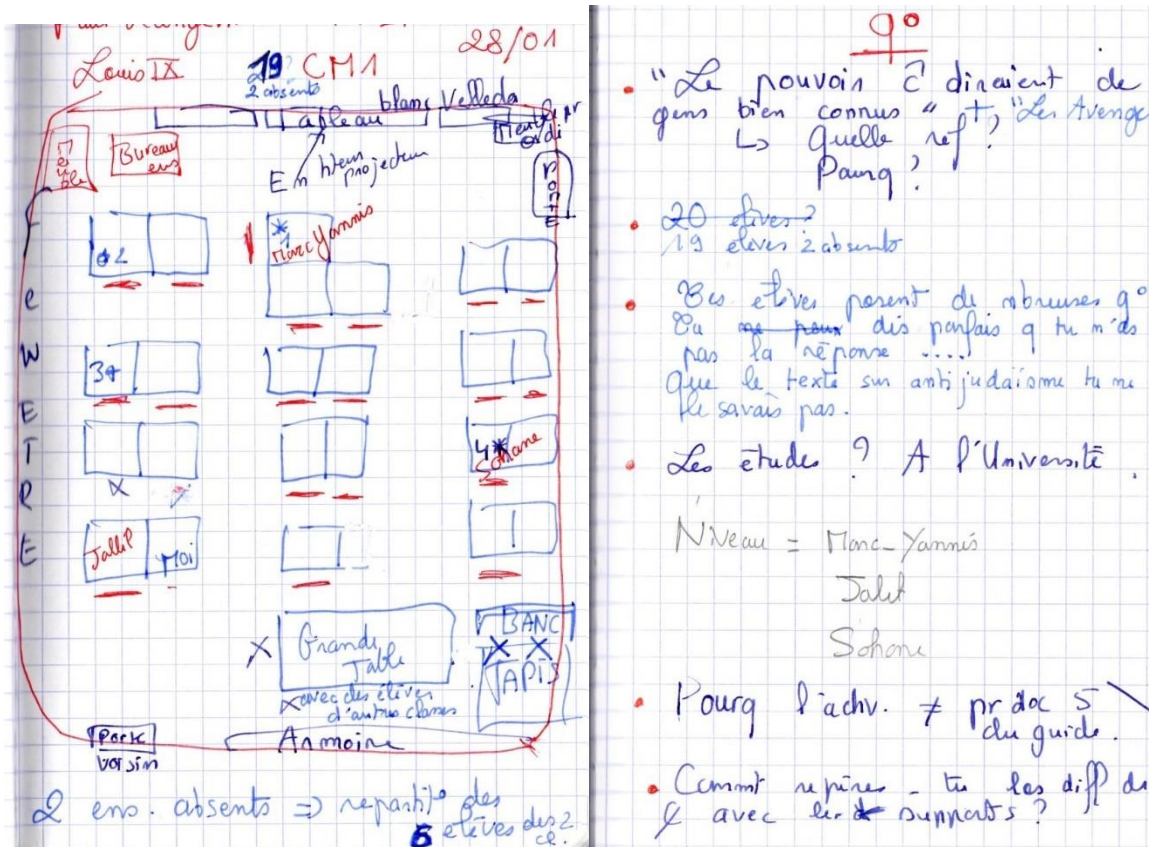 28/01
Louis IX
19 CM1
2 absents
blanc Velleda
Tableau
Meuble
Bureau
ens
En
projecteur
Porte
FENETRE
1
Marc Yannis
2
3
1
4
Sohane
Jallil
Moi
Grande
Table
avec des élèves
d'autres classes
BANC
TAPIS
Porte
voisin
Armoire
2 ens. absents => repartit° des
5 élèves des 2
cl.
q°
"Le pouvoir" diraient de
gens bien connus" + "Les Avenge
↳ Quelle ref ?
Pourq ?
20 élèves ?
19 élèves 2 absents
Tes élèves posent de nbreuses q°
Tu ne peux dis parfois q tu n'as
pas la réponse ....
Que le texte sur antijudaïsme tu ne
le savais pas.
Les études ? A l'Université.
Niveau = Marc-Yannis
Jalil
Sohane
Pourq l'activ. ≠ pr doc 5
du guide.
Commt repères-tu les diff de
avec les supports ?